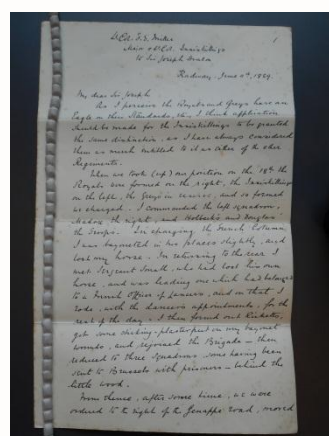 Lt. Col. F. S. Miller
Major & Lt. Col. Inniskillings
to Sir Joseph
Radway, June 4th, 1839.
1
My dear Sir Joseph
As I perceive the Royals and Greys have an
Eagle on their Standards, I think application
should be made for the Inniskillings to be granted
the same distinction, as I have always considered
them as much entitled to it as either of the other
Regiments.
When we took (up) our position on the 18th the
Royals were formed on the right, the Inniskillings
on the left, the Greys in reserve, and so formed
we charged. I commanded the left squadron,
Madox the right, and Holbech's and Douglas
the troops. In charging the French Column,
I was bayoneted in two places slightly, and
lost my horse. In returning to the rear I
met Sergeant Small, who had lost his own
horse, and was leading one which had belonged
to a French Officer of Lancers, and on that I
rode, with the Lancers appointments, for the
rest of the day. I then found our Doctor,
got some sticking-plaister put on my bayonet
wounds, and rejoined the Brigade – then
reduced to three Squadrons, some having been
sent to Brussels with prisoners – behind the
little wood.
From thence, after some time, we were
ordered to the right of the Genappe road, moved